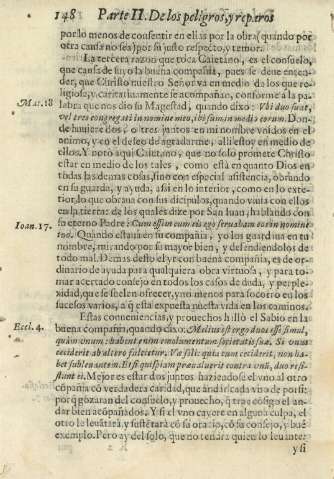 148 Parte II. De los peligros, y reparos
por lo menos de consentir en ellas por la obra (quando por
otra causa no sea) por su justo respecto, y temor.
La tercera razon que toca Cayetano, es el consuelo,
que causa de suyo la buena compañia, pues se deue enten-
der, que Christo nuestro Señor va en medio de los que re-
ligiosa, y caritatiuamente se acompañan, conforme a la pa-
Mat. 18 labra que nos dio su Magestad, quando dixo: Vbi duo sunt,
vel tres congregati in nomine meo, ibi sum in medio eorum. Don-
de huuiere dos, o tres juntos en mi nombre vnidos en el
animo, y en el deseo de agradarme, alli estoy en medio de
ellos. Y notò aqui Caietano, que no solo promete Christo
estar en medio de los tales, como està en quanto Dios en
todas las demas cosas, sino con especial asistencia, obrando
en su guarda, y ayuda, asi en lo interior, como en lo exte-
rior, lo que obraua con sus dicipulos, quando viuia con ellos
en la tierra: de los quales dize por San Iuan, hablando con
Ioan. 17. su eterno Padre: Cum essem cum eis ego seruabam eos in nomine
tuo. Quando estaua en su compañia, yo los guardaua en tu
nombre, mirando por su mayor bien, y defendiendolos de
todo mal. Demas desto el yr con buena compañia, es de or-
dinario de ayuda para qualquiera obra virtuosa, y para to-
mar acertado consejo en todos los casos de duda, y perple-
xidad, que se suelen ofrecer, y no menos para socorro en los
sucesos varios, a q̃ esta expuesta nuestra vida en los caminos.
Estas conueniencias, y prouechos hallò el Sabio en la
Eccl. 4. buena compañia, quando dixo: Melius est ergo duos esse simul,
quàm vnum: habent enim emolumentum societatis suæ. Si vnus
ceciderit ab altero fulcietur. Væ soli: quia cum ceciderit, non ha-
bet subleuantem. Et si quispiam præualuerit contra vnũ, duo resi-
stunt ei. Mejor es estar dos juntos haziendose el vno al otro
cõpañia cõ verdadera caridad, que andar cada vno de por si;
porq̃ gozaran del consuelo, y prouecho, q̃ trae cõsigo el an-
dar bien acõpañados. Y si el vno cayere en alguna culpa, el
otro le leuãtarà, y sustẽtarà cõ su oraciõ, cõ su consejo, y buẽ
exemplo. Pero ay del solo, que no tendra quien lo leuante:
y si